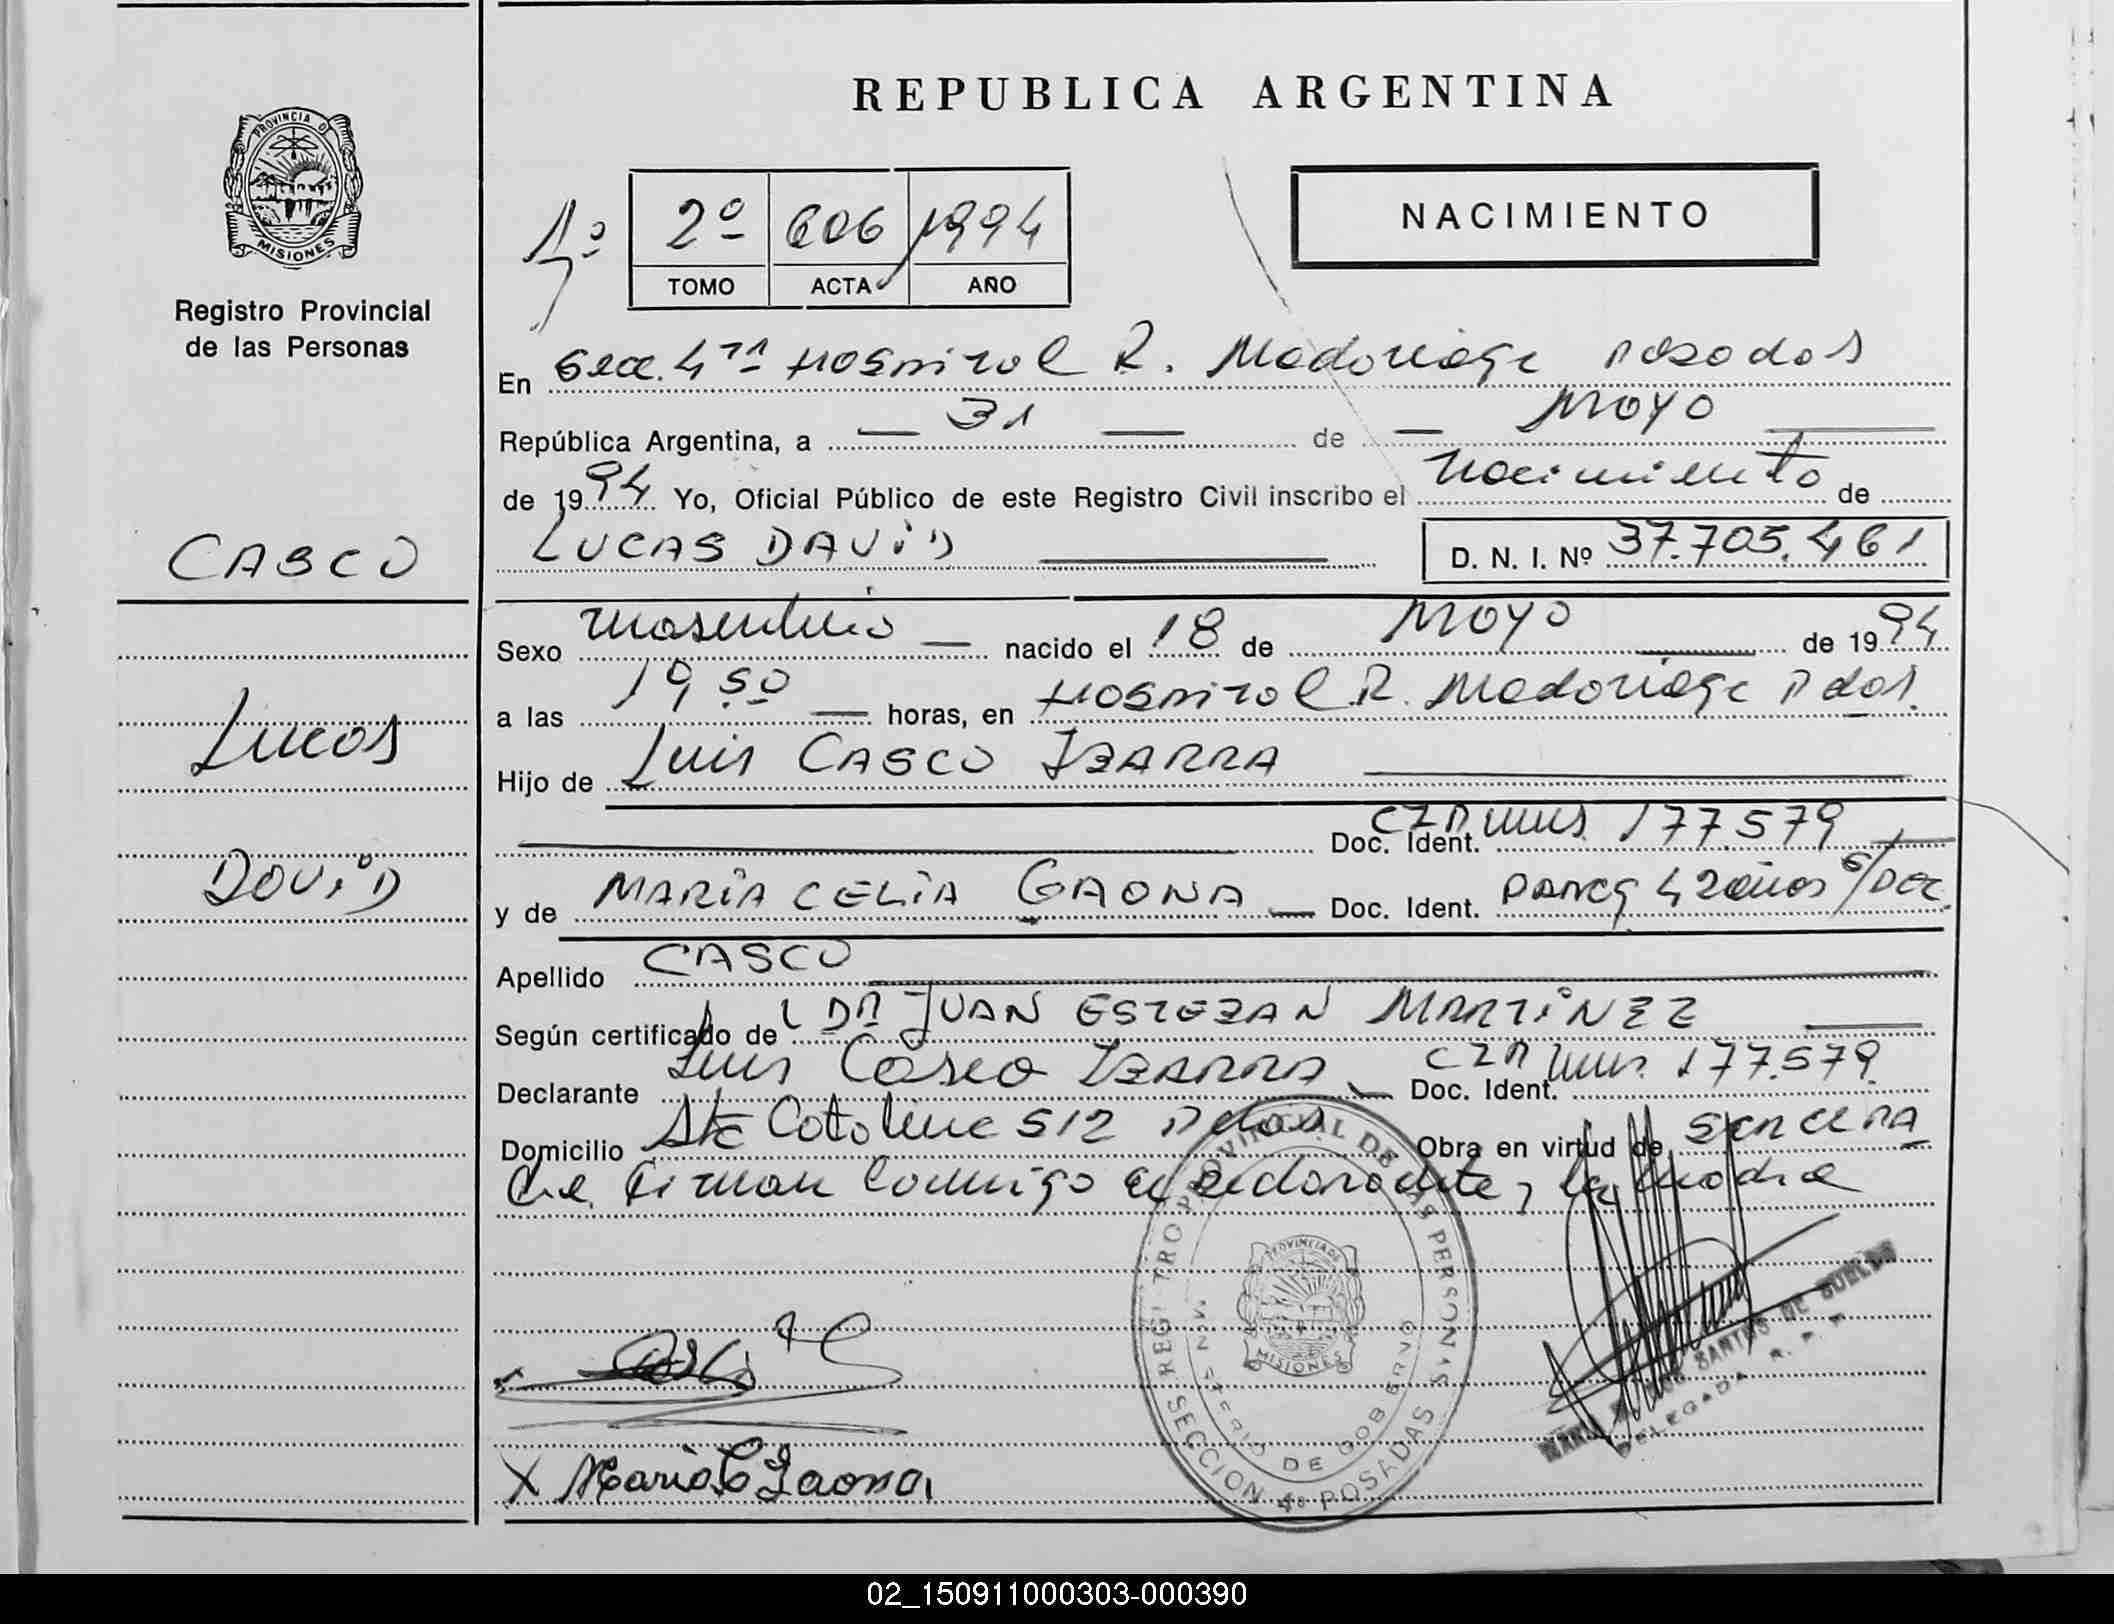 REPUBLICA ARGENTINA
PROVINCIA D
MISIONES
Registro Provincial
de las Personas
1º
2º 606 1994
TOMO ACTA AÑO
NACIMIENTO
En Secc. 4ta Hospital R. Madariaga Posadas
República Argentina, a 31 de Mayo
de 1994 Yo, Oficial Público de este Registro Civil inscribo el nacimiento de
LUCAS DAVID D. N. I. Nº 37.705.461
CASCO
Sexo masculino nacido el 18 de Mayo de 1994
a las 19 50 horas, en Hospital R. Madariaga Pdas.
Lucas
Hijo de Luis CASCO IBARRA
Doc. Ident. 177.579
David
y de MARIA CELIA GAONA Doc. Ident. 42 años s/Doc.
Apellido CASCO
Según certificado de DR JUAN ESTEBAN MARTINEZ
Declarante Luis Casco IBARRA Doc. Ident. 177.579
Domicilio Sta Catalina 512 Pdas Obra en virtud de SER EL PA
dre. Firman conmigo el declarante y la madre
REGISTRO PROVINCIAL DE LAS PERSONAS
MINISTERIO DE GOBIERNO
PROVINCIA DE
MISIONES
SECCION 4º POSADAS
SANTOS DE
DELEGADA R. P. P.
X Maria C Gaona
02_150911000303-000390